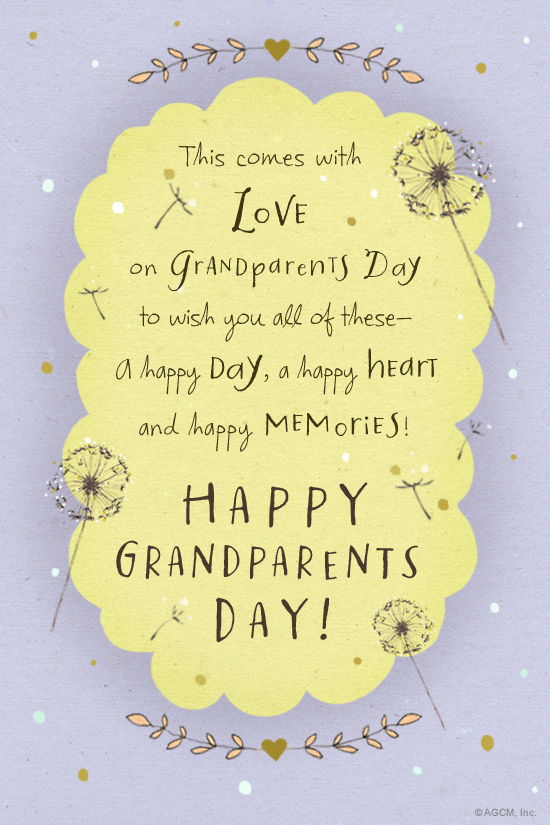 This comes with
LOVE
on GRANDparents Day
to wish you all of these—
a happy Day, a happy heart
and happy MEMories!
HAPPY
GRANDPARENTS
DAY!
©AGCM, Inc.